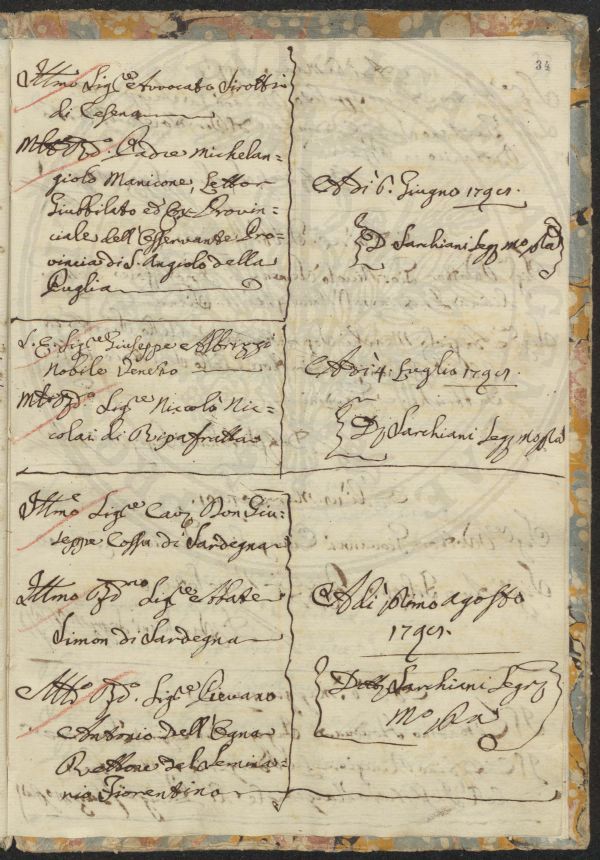 34
Illmo Sig.e Avvocato Sirotti
di Cesena
Padre Michelan=
giolo Manicone, Lettor
Giubbilato ed Ex Provin=
ciale dell'Osservante Pro=
vincia di S. Angiolo della
Puglia
Adì 6. Giugno
Sarchiani Seg.
S. E. Sig.e Giuseppe Albrizzi
Nobile Veneto
Sig.e Niccolò Nic=
colai di Ripafratta
Adì 4. Luglio
Sarchiani Seg.
Illmo Sig.e Cav. Don Giu=
seppe Cossu di Sardegna
Illmo Sig.e Abate
Simon di Sardegna
Sig.e Pievano
Antonio dell'Ogna
Rettore del Semina=
rio Fiorentino
Adì Primo Agosto
Sarchiani Seg.